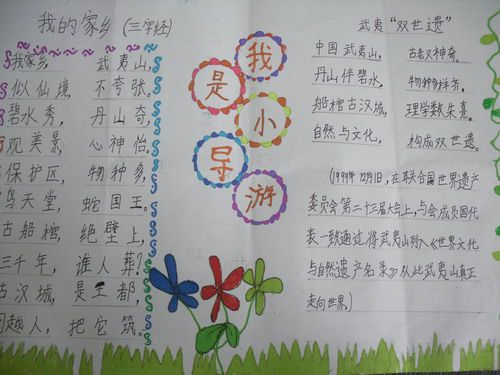 我的家乡（三字经）
我家乡， 武夷山，
似仙境， 不夸张。
碧水秀， 丹山奇，
观美景， 心神怡。
保护区， 物种多，
鸟天堂， 蛇国王。
古船棺， 绝壁上，
三千年， 谁人葬？
古汉城， 是王都，
闽越人， 把它筑。
我是小导游
武夷“双世遗”
中国武夷山， 古老又神奇。
丹山伴碧水， 物种多样齐。
船棺古汉城， 理学数朱熹。
自然与文化， 构成双世遗。
(1999年12月1日，在联合国世界遗产
委员会第二十三届大会上，与会成员国代
表一致通过将武夷山列入《世界文化
与自然遗产名录》从此武夷山真正
走向世界。)